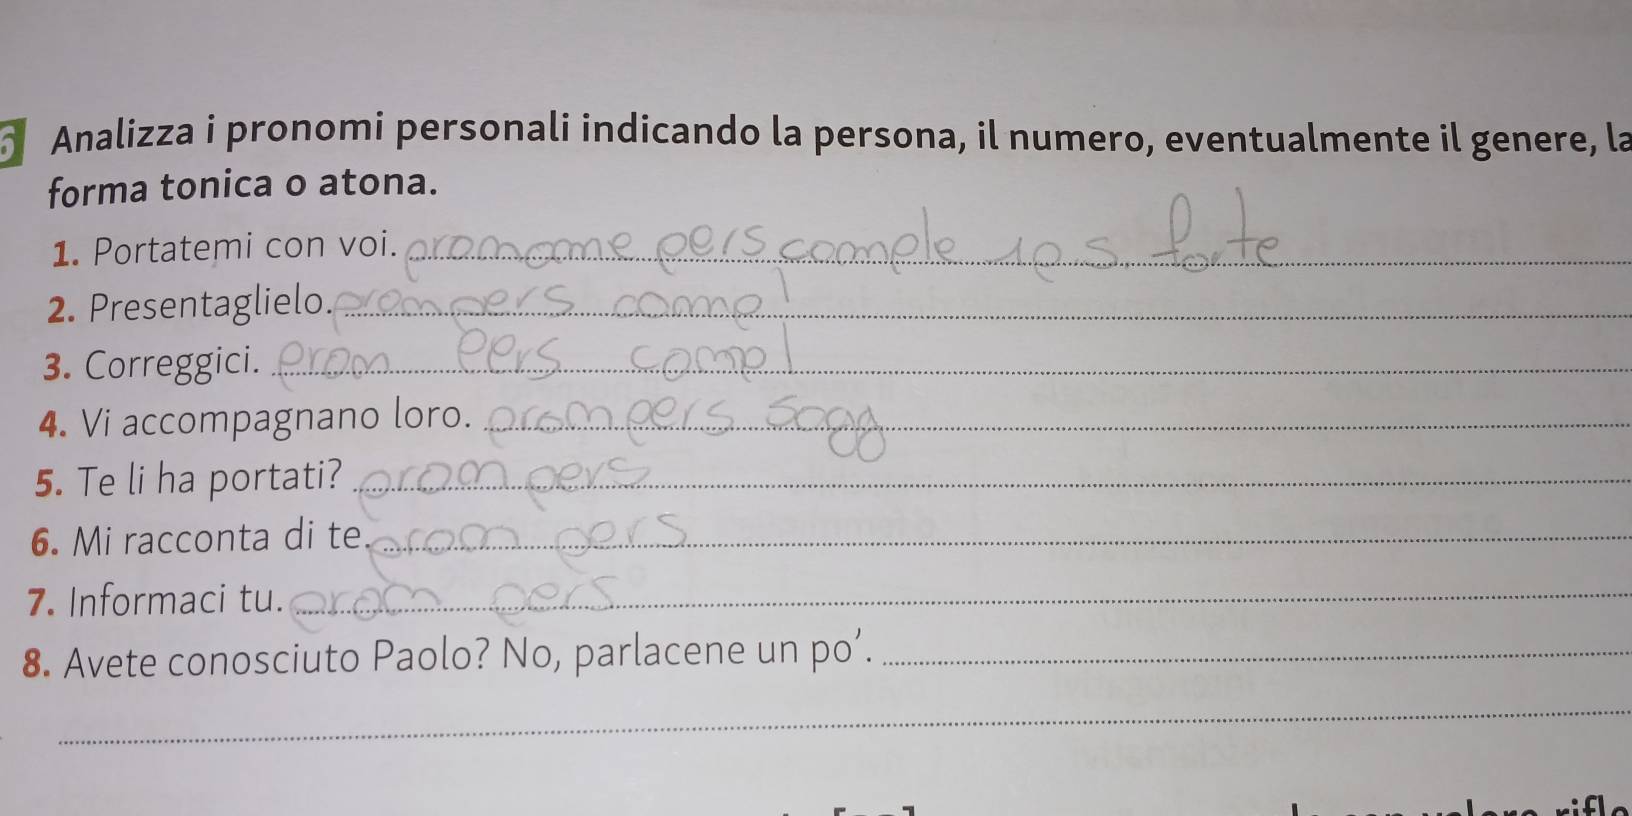 6 Analizza i pronomi personali indicando la persona, il numero, eventualmente il genere, la
forma tonica o atona.
1. Portatemi con voi. pronome pers comple 1 p s. forte
2. Presentaglielo. pron pers compl
3. Correggici. pron pers compl
4. Vi accompagnano loro. pron pers sogg
5. Te li ha portati? pron pers
6. Mi racconta di te. pron pers
7. Informaci tu. pron pers
8. Avete conosciuto Paolo? No, parlacene un po’.